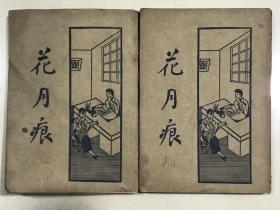 花月痕
花月痕